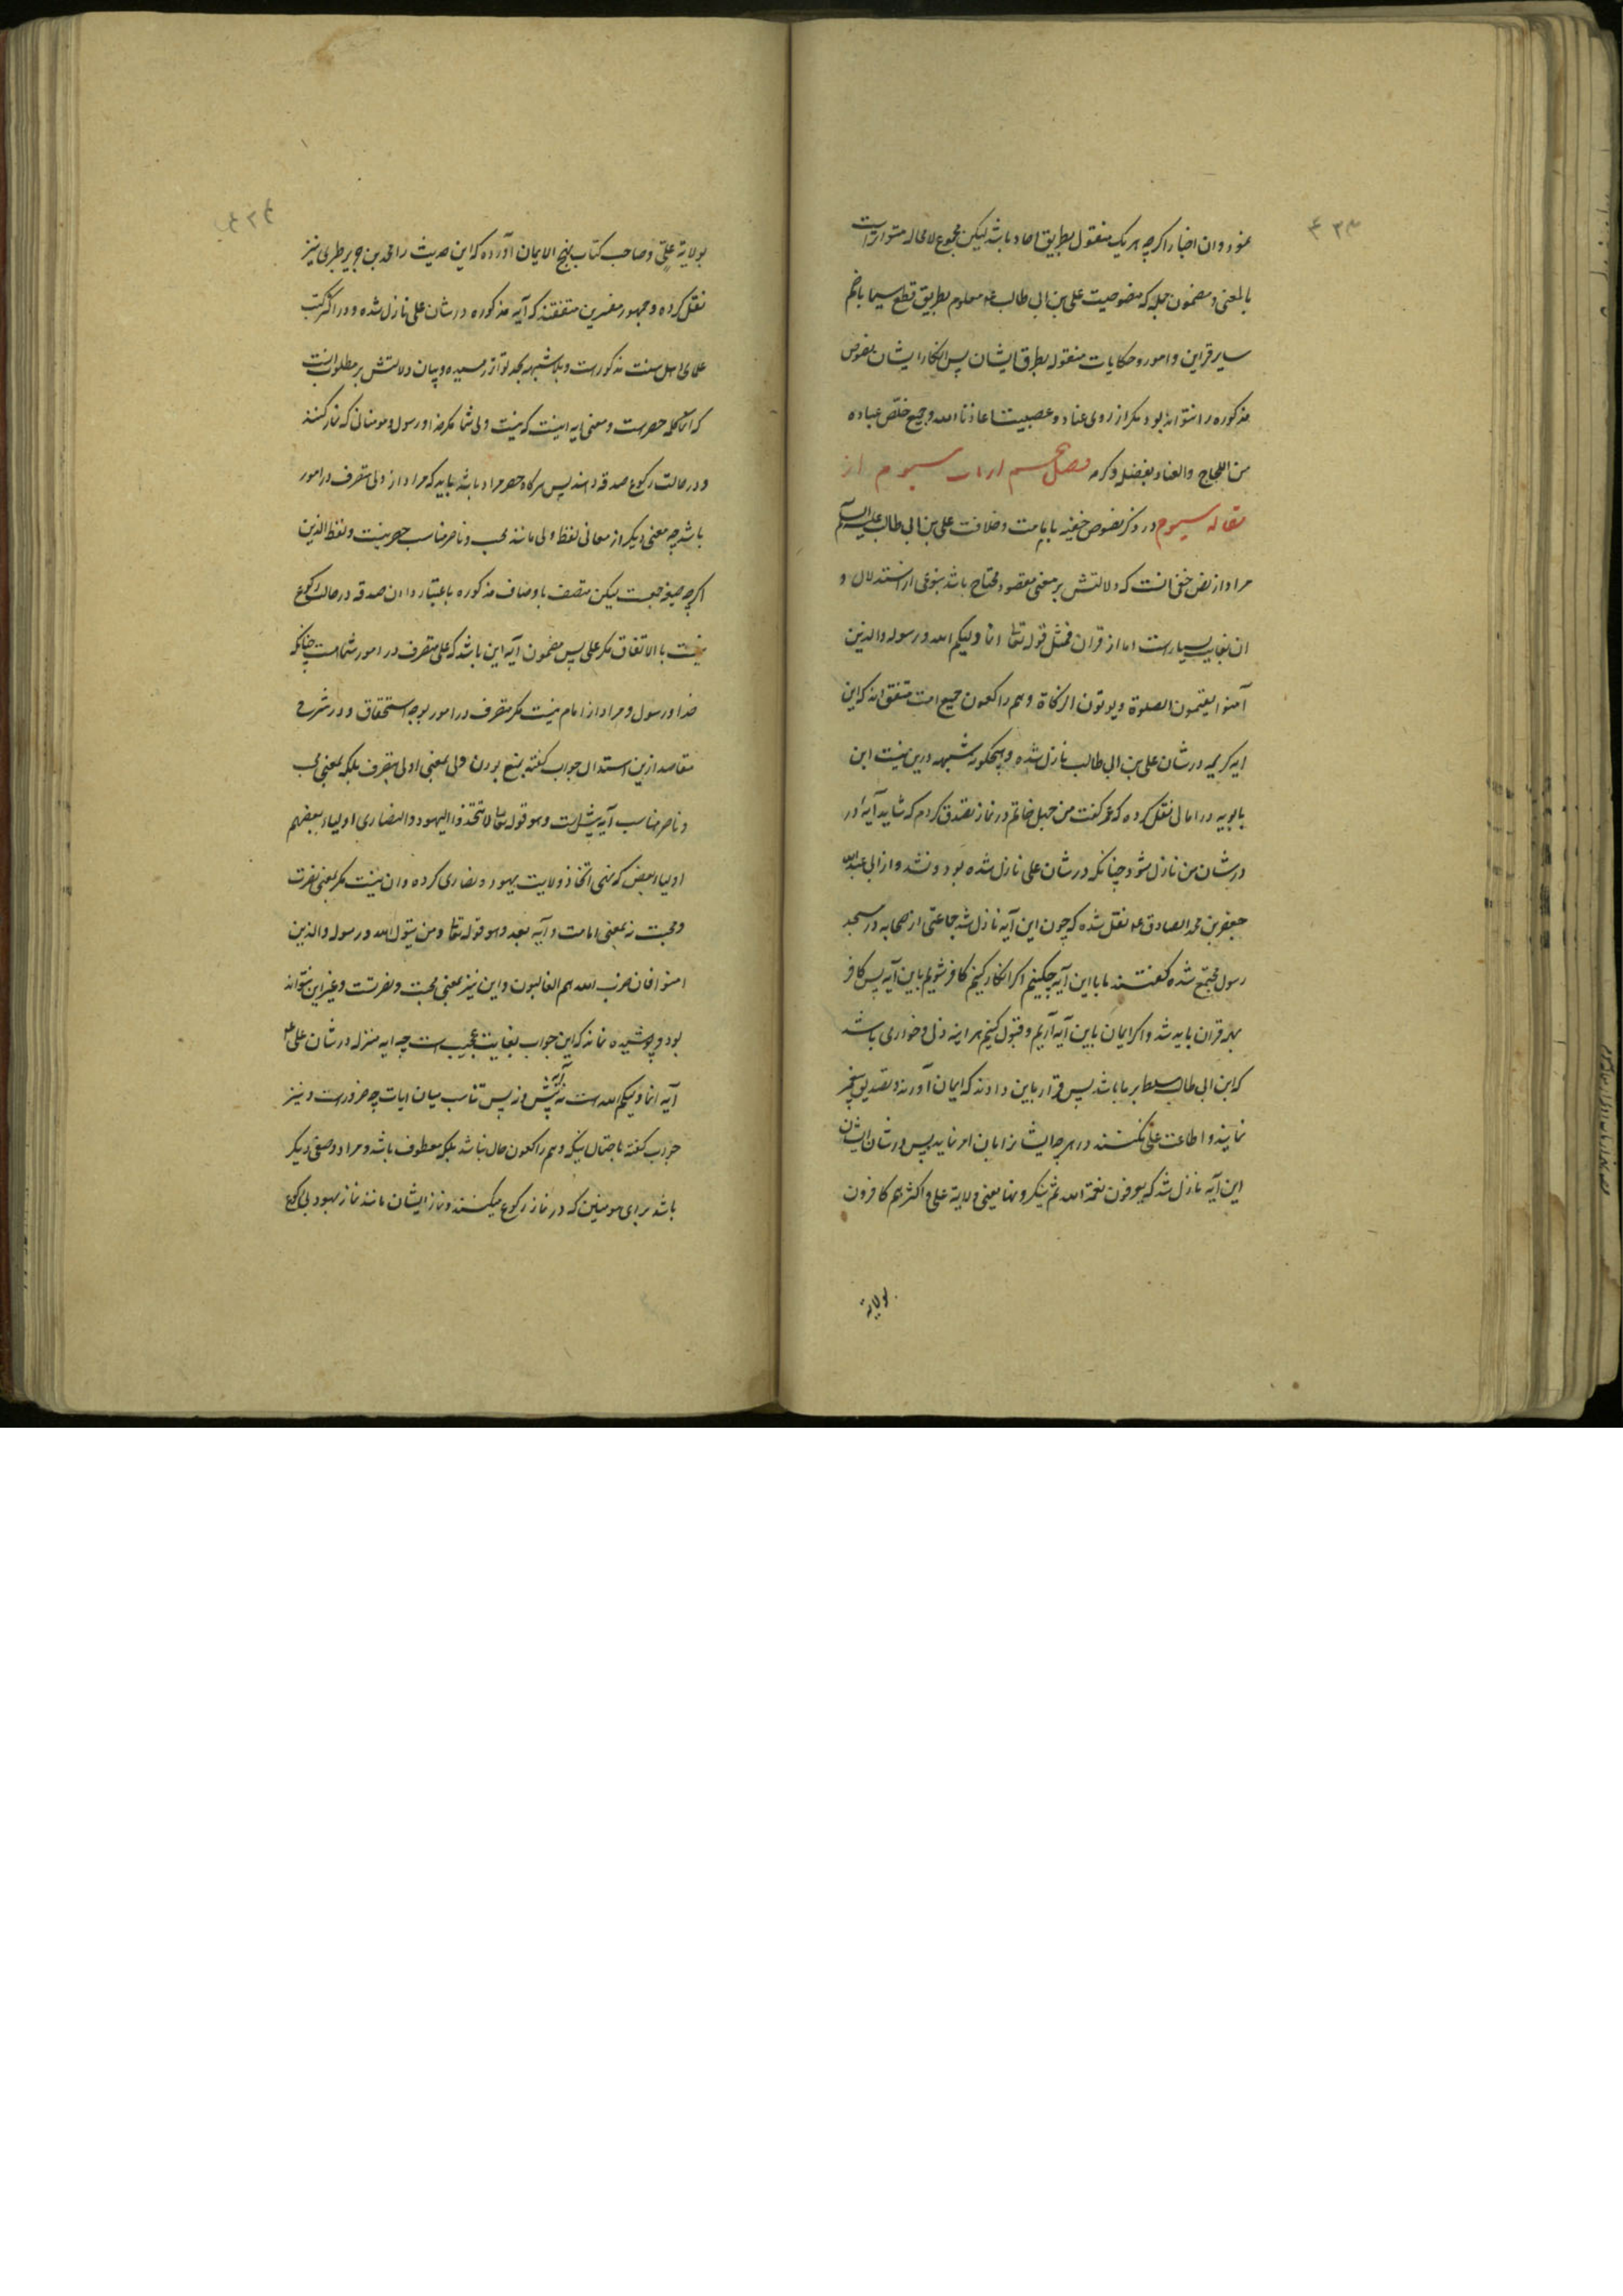 نمود و ان اخبار اکرچه هر یک منقول بطریق احاد باشد لیکن مجموع لامحاله متواتراست
بالمعنی و مضمون جمله که منصوصیت علی بن ابی طالب ع معلوم بطریق قطع سیما بانضم
سایر قراین و امور و حکایات منقوله بطرق ایشان پس انکار ایشان نصوص
مذکوره را نتواند بود مکر از روی عناد و عصبیت اعاذنا الله و جمیع خلّص عباده
من اللجاج والعناد بفضله و کرمه فصل از باب سیوم از
مقاله سیوم در ذکر نصوص خفیه بامامت و خلافت علی بن ابی طالب علیه السلام
مراد از نص خفی انست که دلالتش بر معنی مقصود محتاج باشد بنوعی از استدلال و
ان بغایت بسیارست اما از قران فمثل قوله تعا انما ولیکم الله و رسوله والذین
آمنوا یقیمون الصلوة ویوتون الزکاة وهم راکعون جمیع امت متفق اند که این
ایه کریمه در شان علی بن ابی طالب نازل شده و هیچکونه شبهه درین نیست ابن
بابویه در امالی نقل کرده که عمر کفت من چهل خاتم در نماز تصدق کردم که شاید آیه در
در شان من نازل شود چنانکه در شان علی نازل شده بود و نشد و از ابی عبدالله
جعفر بن محمد الصادق ع نقل شده که چون این آیه نازل شد جماعتی از صحابه در مسجد
رسول مجتمع شده کفتند ما با این آیه چکنیم اکر انکار کنیم کافر شویم باین آیه پس کافر
بهمه قران باید شد و اکر ایمان باین آیه آریم و قبول کنیم هر اینه ذل و خواری باشد
که ابن ابی طالب مسلط بر ما باشد پس قرار باین دادند که ایمان آورند و تصدیق پیغمبر
نمایند و اطاعت علی نکنند در هر چه ایشانرا بان امر نماید پس در شان ایشان
این آیه نازل شد که یعرفون نعمة الله ثم ینکرونها یعنی ولایة علی و اکثرهم کافرون
بولایة
بولایة علیّ و صاحب کتاب نهج الایمان آورده که این حدیث را محمد بن جریر طبری نیز
نقل کرده و جمهور مفسرین متفقند که آیه مذکوره در شان علی نازل شده و در اکثر کتب
علمای اهل سنت مذکورست و بلا شبهه بحد تواتر رسیده و بیان دلالتش بر مطلوب انست
که انما کلمه حصرست و معنی ایه اینست که نیست ولی شما مکر خدا و رسول و مومنانی که نماز کنند
و در حالت رکوع صدقه دهند پس هرکاه حصر مراد باشد باید که مراد از ولی متصرف در امور
باشد چه معنی دیکر از معانی لفظ ولی مانند محب و ناصر مناسب حصر نیست و لفظ الذین
اکرچه صیغه جمعست لیکن متصف باوصاف مذکوره باعتبار دادن صدقه در حالت رکوع
نیست بالاتفاق مکر علی پس مضمون آیه این باشد که علی متصرف در امور شماست چنانکه
خدا و رسول و مراد از امام نیست مکر متصرف در امور بوجه استحقاق و در شرح
مقاصد ازین استدلال جواب کفته بمنع بودن ولی بمعنی اولی بتصرف بلکه بمعنی محب
و ناصر مناسب آیه پیش است وهو قوله تعا لا تتخذوا الیهود والنصاری اولیاء بعضهم
اولیاء بعض که نهی اتخاذ ولایت یهود و نصاری کرده و ان نیست مکر بمعنی نصرت
و محبت نه بمعنی امامت و آیه بعد وهو قوله تعا ومن یتول الله ورسوله والذین
امنوا فان حزب الله هم الغالبون و این نیز بمعنی محبت و نصرتست و غیر این نتواند
بود و پوشیده نماند که این جواب بغایت عجیب است چه ایه منزله در شان علی ع
آیه انما ولیکم الله ست نه آیه پیش و نه پس تناسب میان ایات چه ضرورست و نیز
جواب کفته باحتمال اینکه وهم راکعون حال نباشد بلکه معطوف باشد و مراد وصفی دیکر
باشد برای مومنین که در نماز رکوع میکنند و نماز ایشان مانند نماز یهود بی رکوع